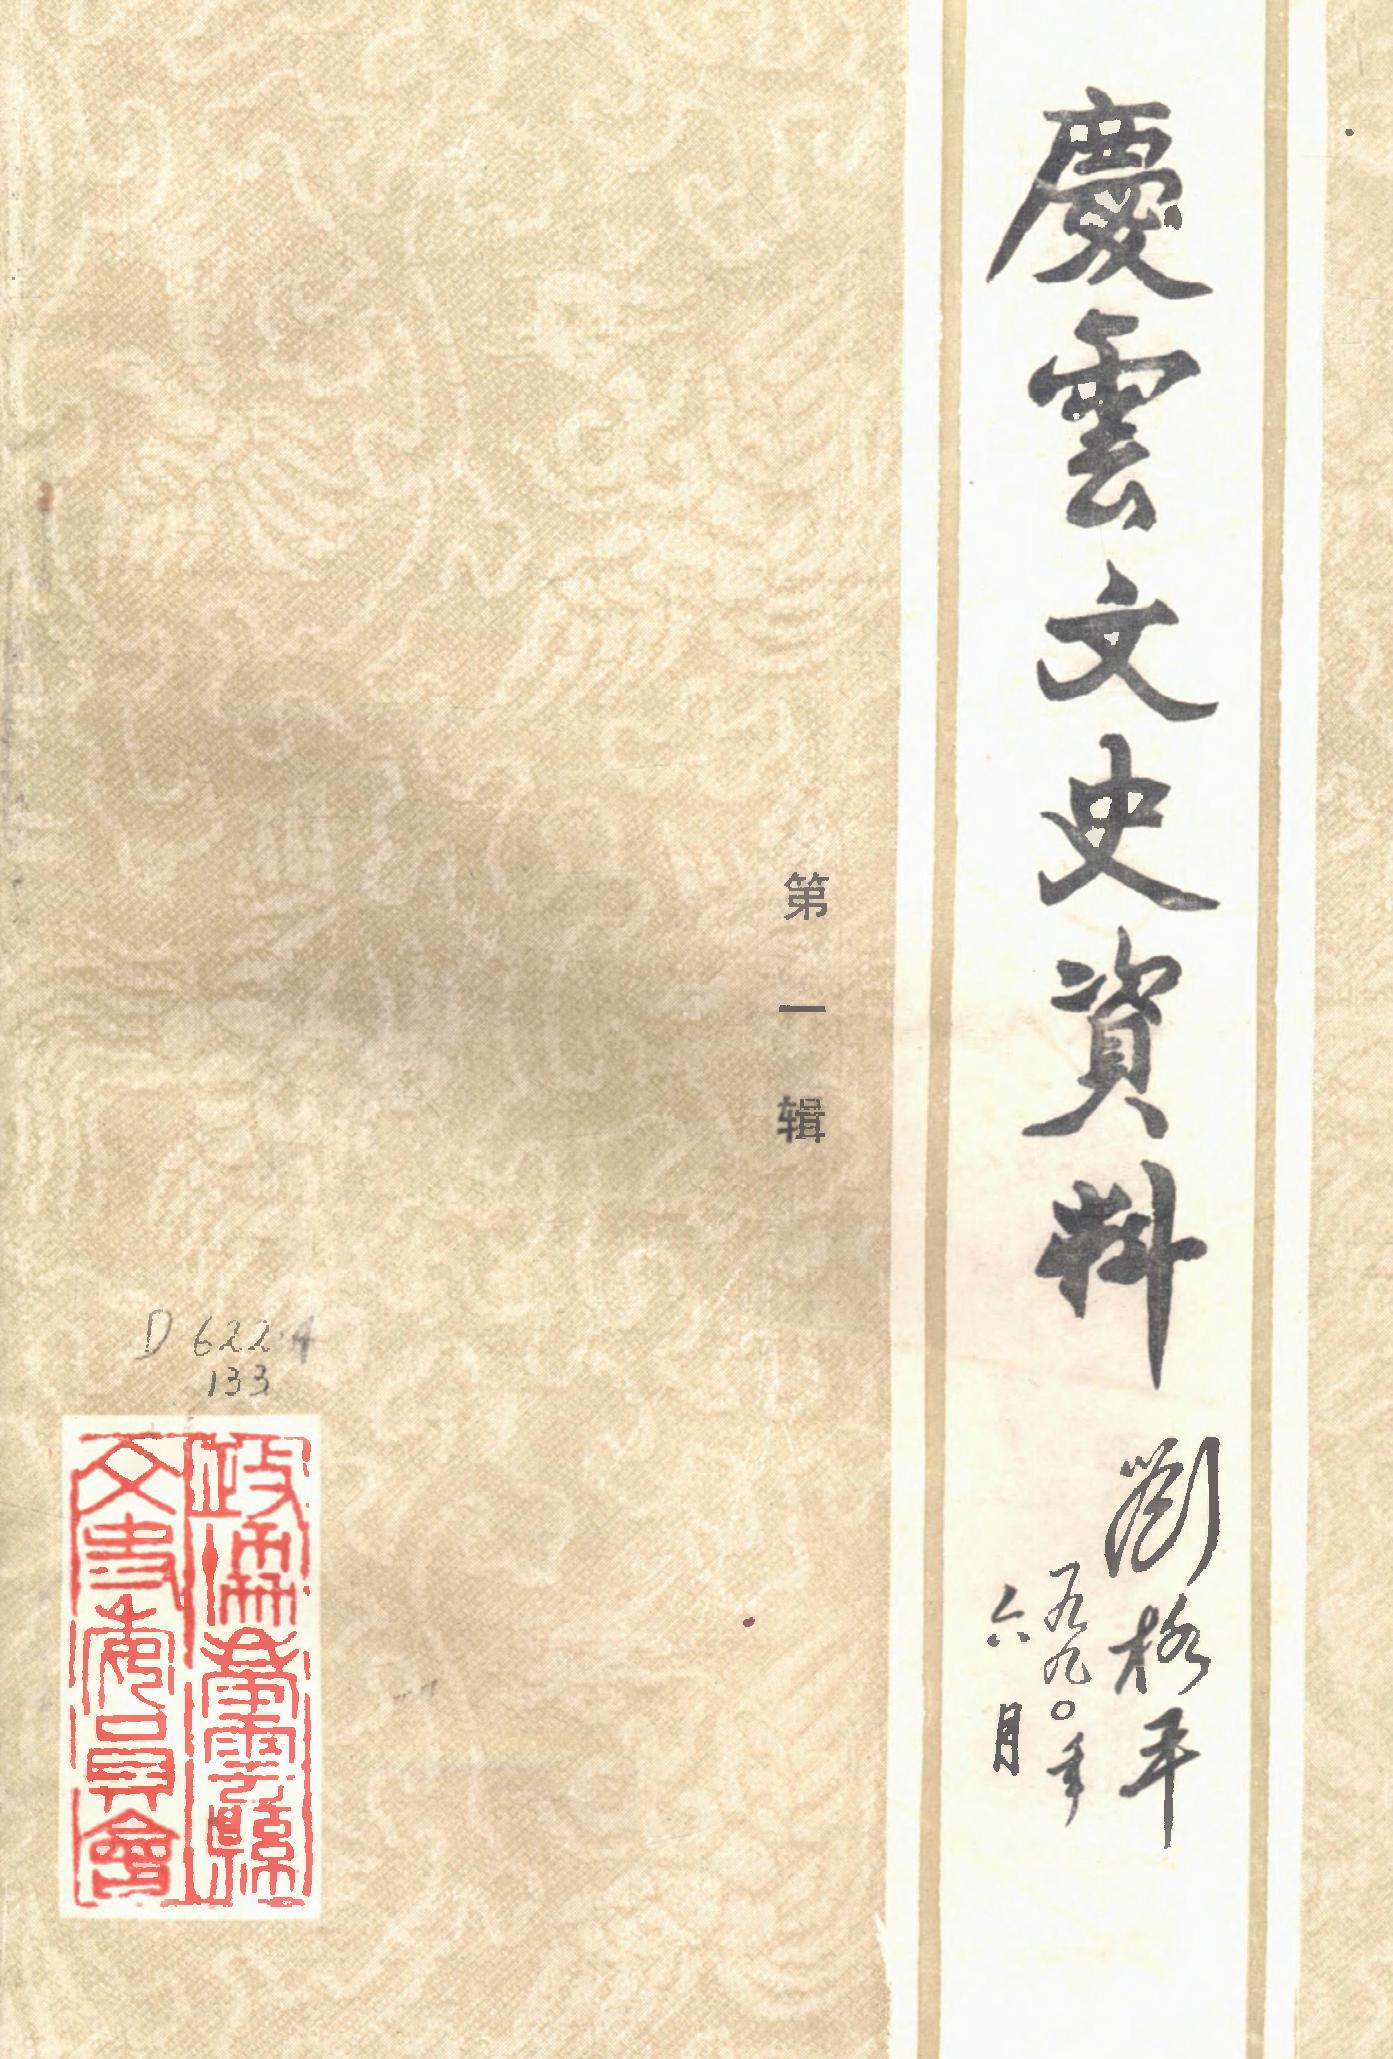 慶雲文史資料
劉格平
一九九〇年
六月
第一辑
D 622.4
133
政協慶雲縣
文史委員會